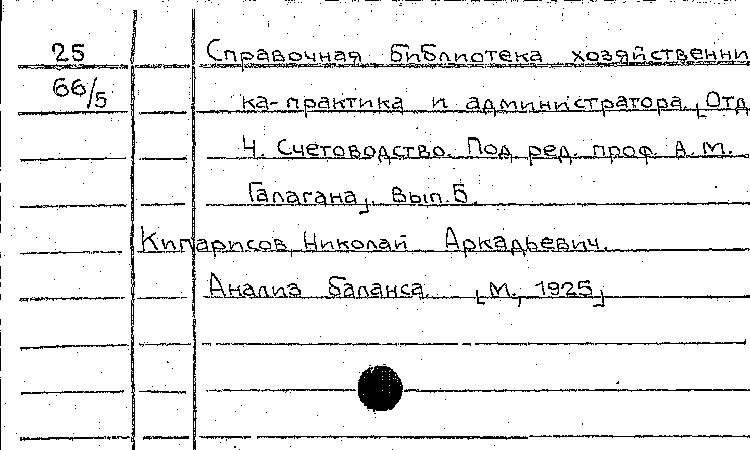 25 Справочная библиотека хозяйственни
66/5 ка-практика и администратора. [Отд
4. Счетоводство. Под ред. проф. А.М.
Галагана]. Вып.5.
Кипарисов, Николай Аркадьевич.
Анализ баланса. [М., 1925]